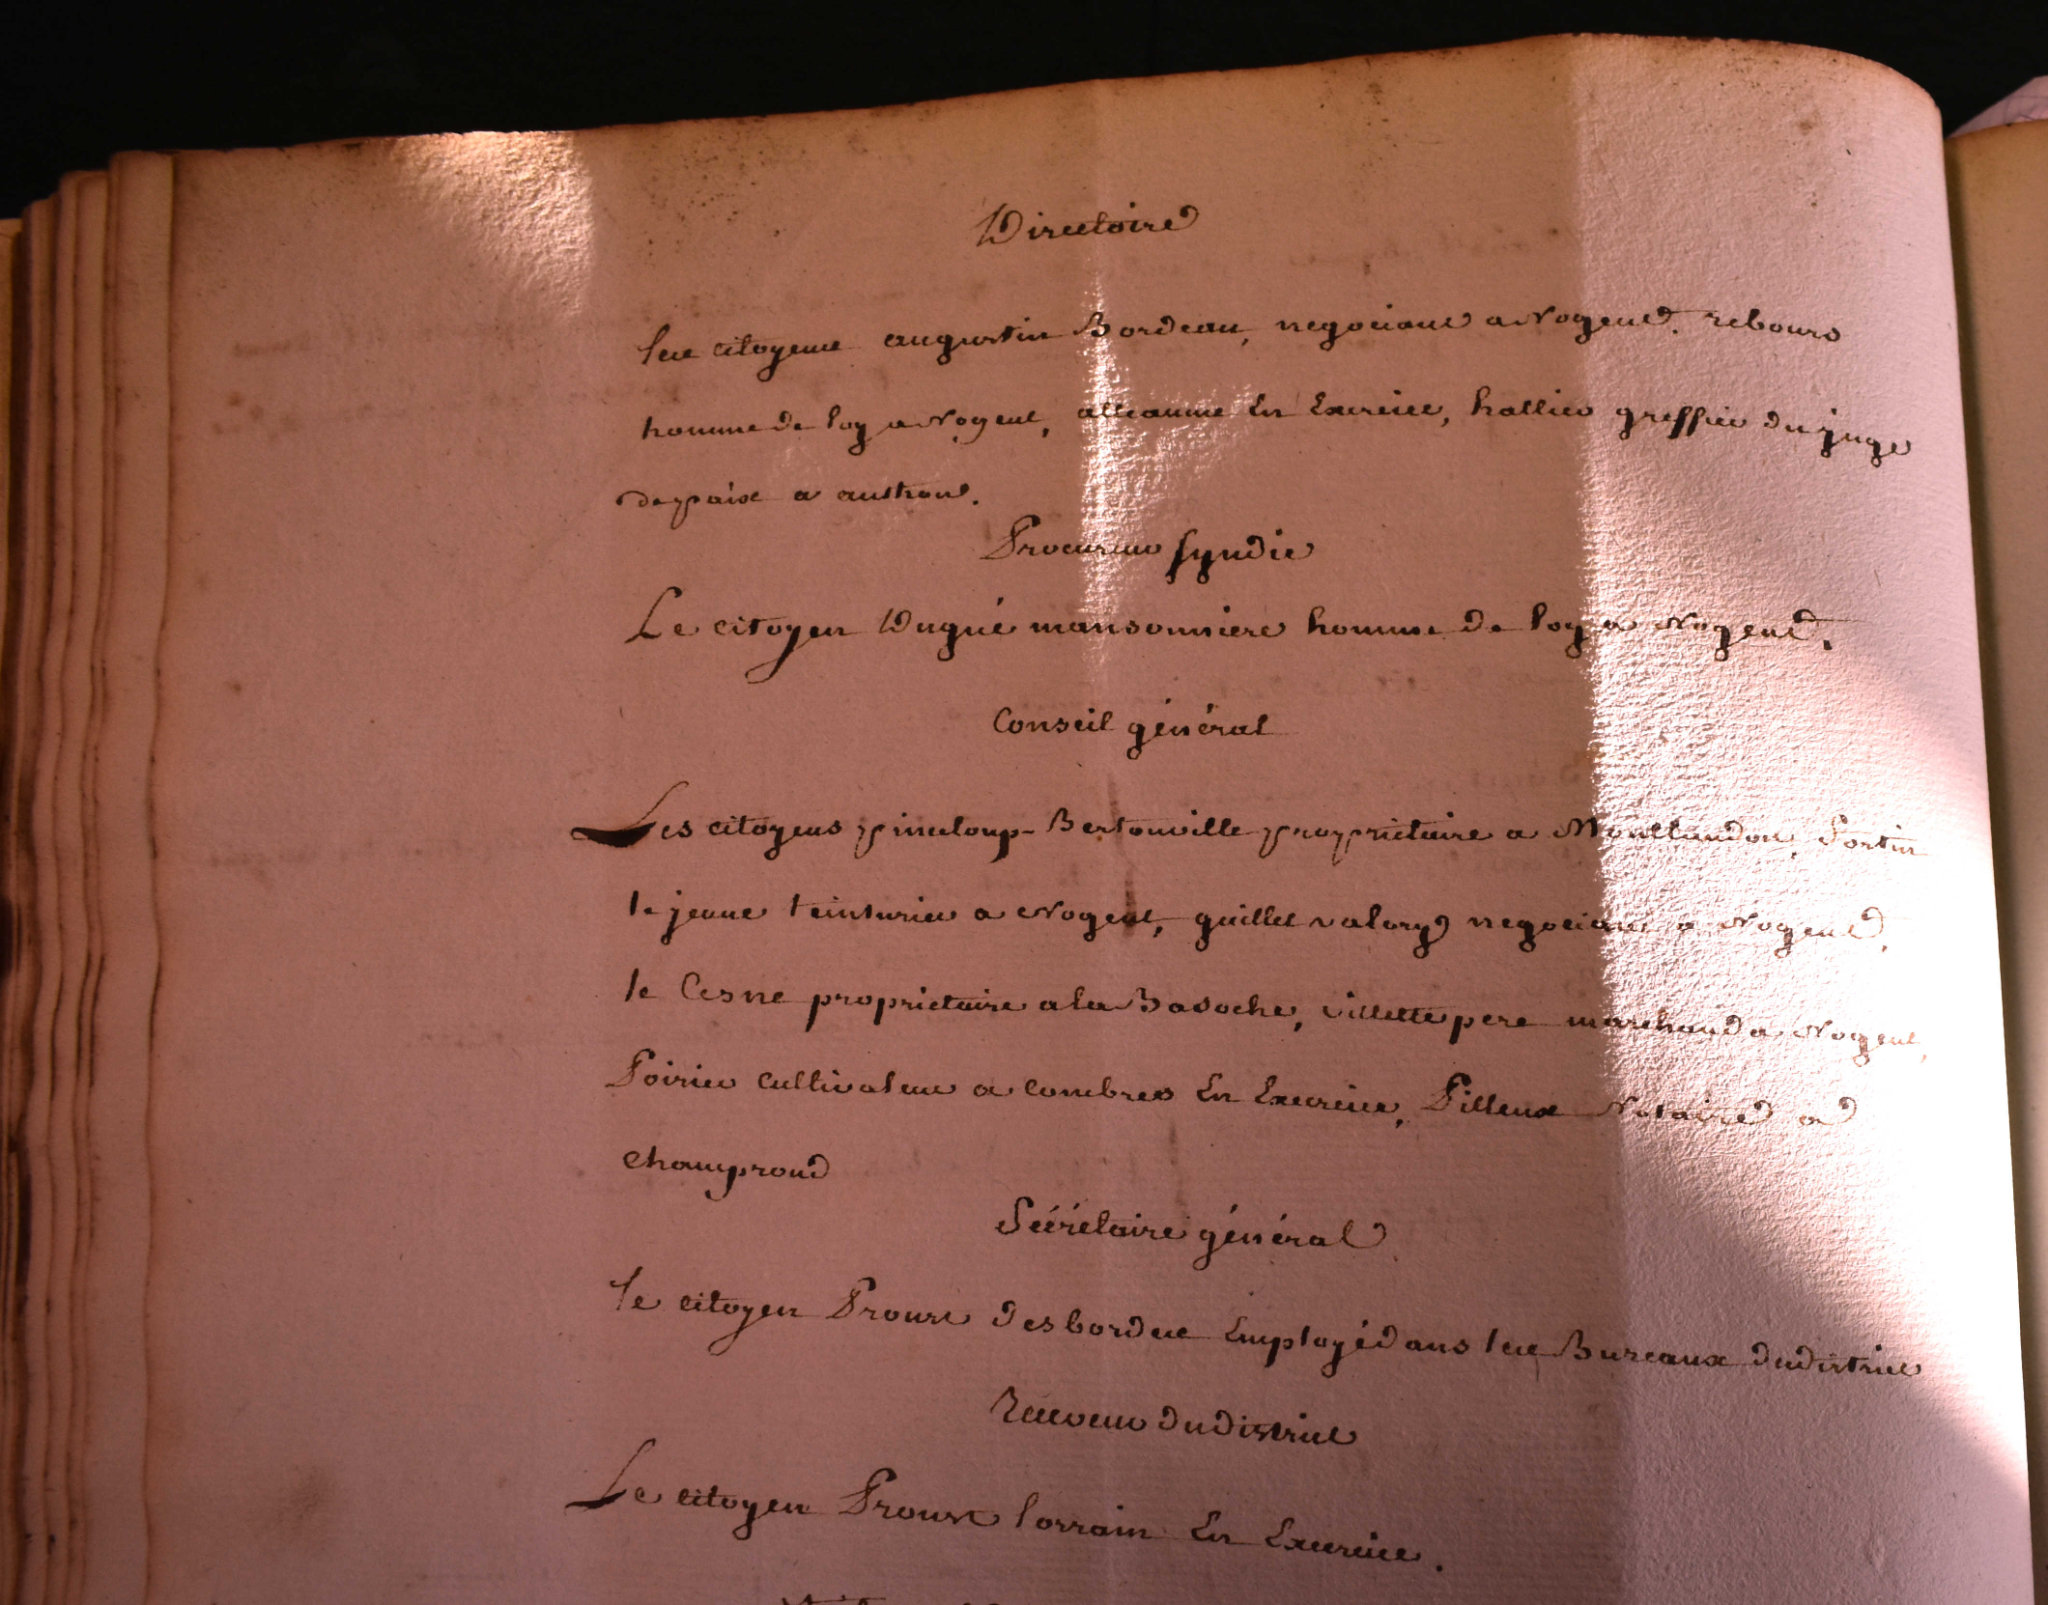 Directoire
Les citoyens augustin Bordeau, negociant a Nogent. rebours
homme de loy a Nogent, alleaume En Exercice, hallier greffier du juge
de paix a authon.
Procureur Syndic
Le citoyen Dugué mansonniere homme de loy a Nogent.
Conseil général
Les citoyens pineloup-Bertonville proprietaire a Montlandon, Fortin
le jeune teinturier a Nogent, guillet valory negociant a Nogent,
le Cesne proprietaire a la Basoche, villette pere marchand a Nogent,
Poirier Cultivateur a Combres En Exercice, Pilleux Notaire a
Champrond
Sécrétaire général
le citoyen Proust des bordes Employé dans les Bureaux du district
Receveur du district
Le citoyen Proust lorrain En Exercice.